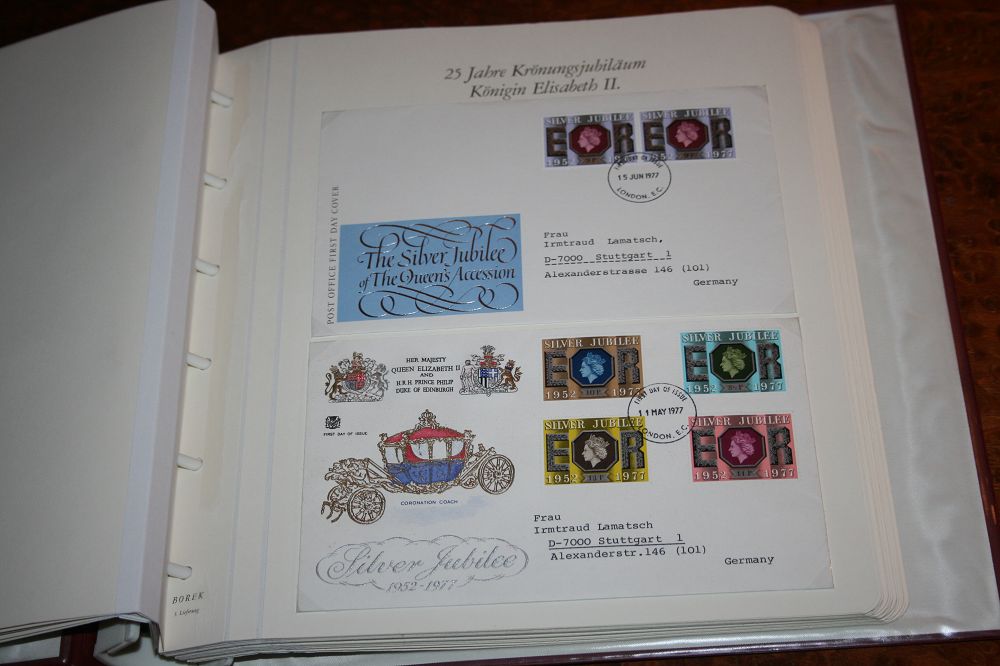 25 Jahre Krönungsjubiläum
Königin Elisabeth II.
SILVER JUBILEE
SILVER JUBILEE
E R
E R
1952 1977
15 JUN 1977
LONDON, E.C.
POST OFFICE FIRST DAY COVER
The Silver Jubilee
of The Queen's Accession
Frau
Irmtraud Lamatsch,
D-7000 Stuttgart 1
Alexanderstrasse 146 (101)
Germany
HER MAJESTY
QUEEN ELIZABETH II
AND
H.R.H PRINCE PHILIP
DUKE OF EDINBURGH
FIRST DAY OF ISSUE
CORONATION COACH
Silver Jubilee
1952-1977
SILVER JUBILEE
E R
1952 10P 1977
SILVER JUBILEE
E R
1952 8½P 1977
FIRST DAY OF ISSUE
11 MAY 1977
LONDON, E.C.
SILVER JUBILEE
E R
1952 1977
SILVER JUBILEE
E R
1952 11P 1977
Frau
Irmtraud Lamatsch
D-7000 Stuttgart 1
Alexanderstr.146 (101)
Germany
BOREK
1. Lieferung